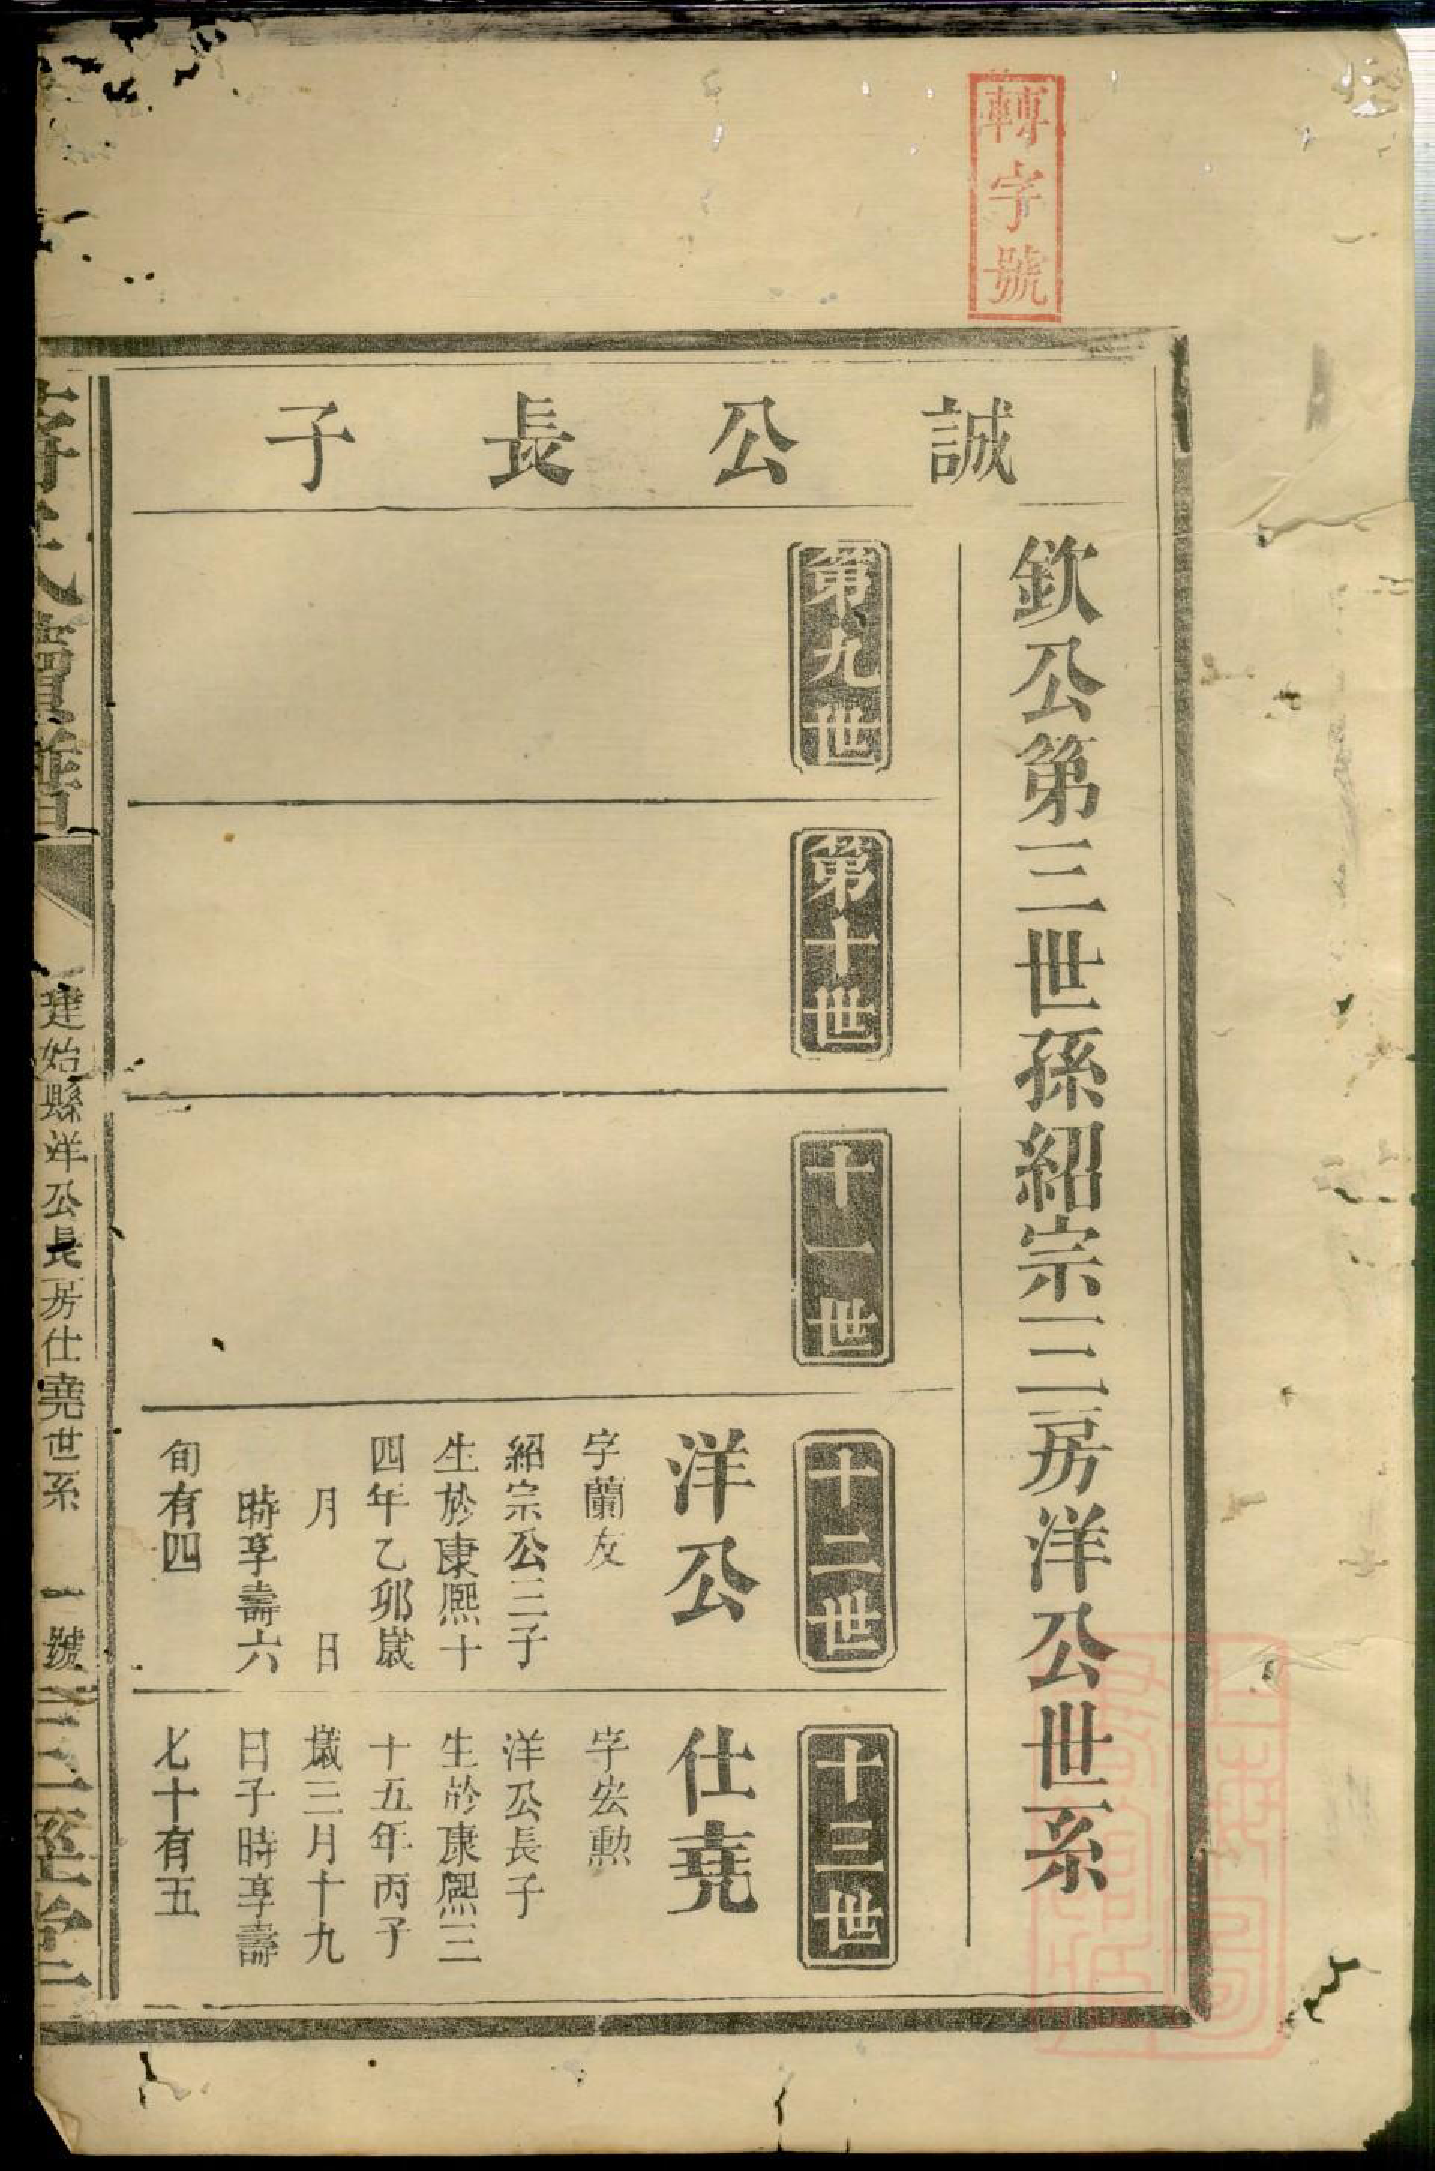 轉字號
誠公長子
欽公第三世孫紹宗三房洋公世系
第九世
第十世
十一世
十二世
洋公
字蘭友
紹宗公三子
生於康熙十
四年乙卯歲
月 日
時享壽六
旬有四
十三世
仕堯
字宏勲
洋公長子
生於康熙三
十五年丙子
歲三月十九
日子時享壽
七十有五
蔣氏續譜
建始縣洋公長房仕堯世系 一號
三徑堂